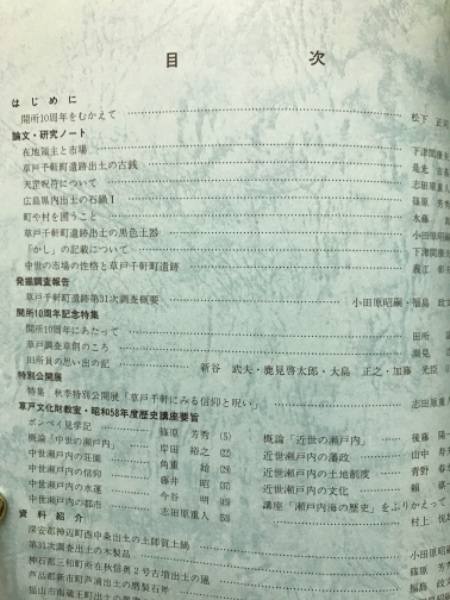 目次
はじめに
開所10周年をむかえて 松下 正
論文・研究ノート
在地領主と市場 下津間康夫
草戸千軒町遺跡出土の古銭 是光 吉基
天罡呪符について 志田原重人
広島県内出土の石鍋Ⅰ 篠原 芳秀
町や村を囲うこと
草戸千軒町遺跡出土の黒色土器 小田原昭嗣
「かし」の記載について 下津間康夫
中世の市場の性格と草戸千軒町遺跡 彰
発掘調査報告
草戸千軒町遺跡第31次調査概要 小田原昭嗣・福島 政文
開所10周年記念特集
開所10周年にあたって 田所
草戸調査草創のころ 潮見
旧所員の思い出の記 新谷 武夫・鹿見啓太郎・大島 正之・加藤 光臣
特別公開展
特集 秋季特別公開展「草戸千軒にみる信仰と呪い」 志田原重人
草戸文化財教室・昭和58年度歴史講座要旨
ポンペイ見学記 篠原 芳秀 (5)
概論「中世の瀬戸内」 岸田 裕之 (22)
中世瀬戸内の荘園 角重 始 (29)
中世瀬戸内の信仰 藤井 昭 (37)
中世瀬戸内の水運 今谷 明
中世瀬戸内の都市 志田原重人
概論「近世の瀬戸内」 後藤 陽一
近世瀬戸内の藩政 山中 寿夫
近世瀬戸内の土地制度 青野 春水
近世瀬戸内の文化 頼
講座「瀬戸内海の歴史」をふりかえって
村上
資料紹介
深安郡神辺町西中条出土の土師質土鍋 小田原昭嗣
第31次調査出土の木製品 篠原
神石郡三和町所在秋信奥2号古墳出土の
芦品郡新市町芦浦出土の磨製石斧 福島 政文
福山市南蔵王町出土の